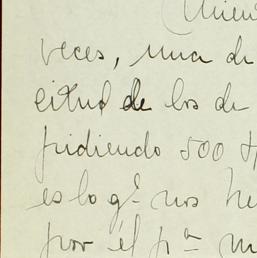 (Mien
veces, una de
citud de los de
pidiendo 500
es lo q.e nos he
por él p.a m